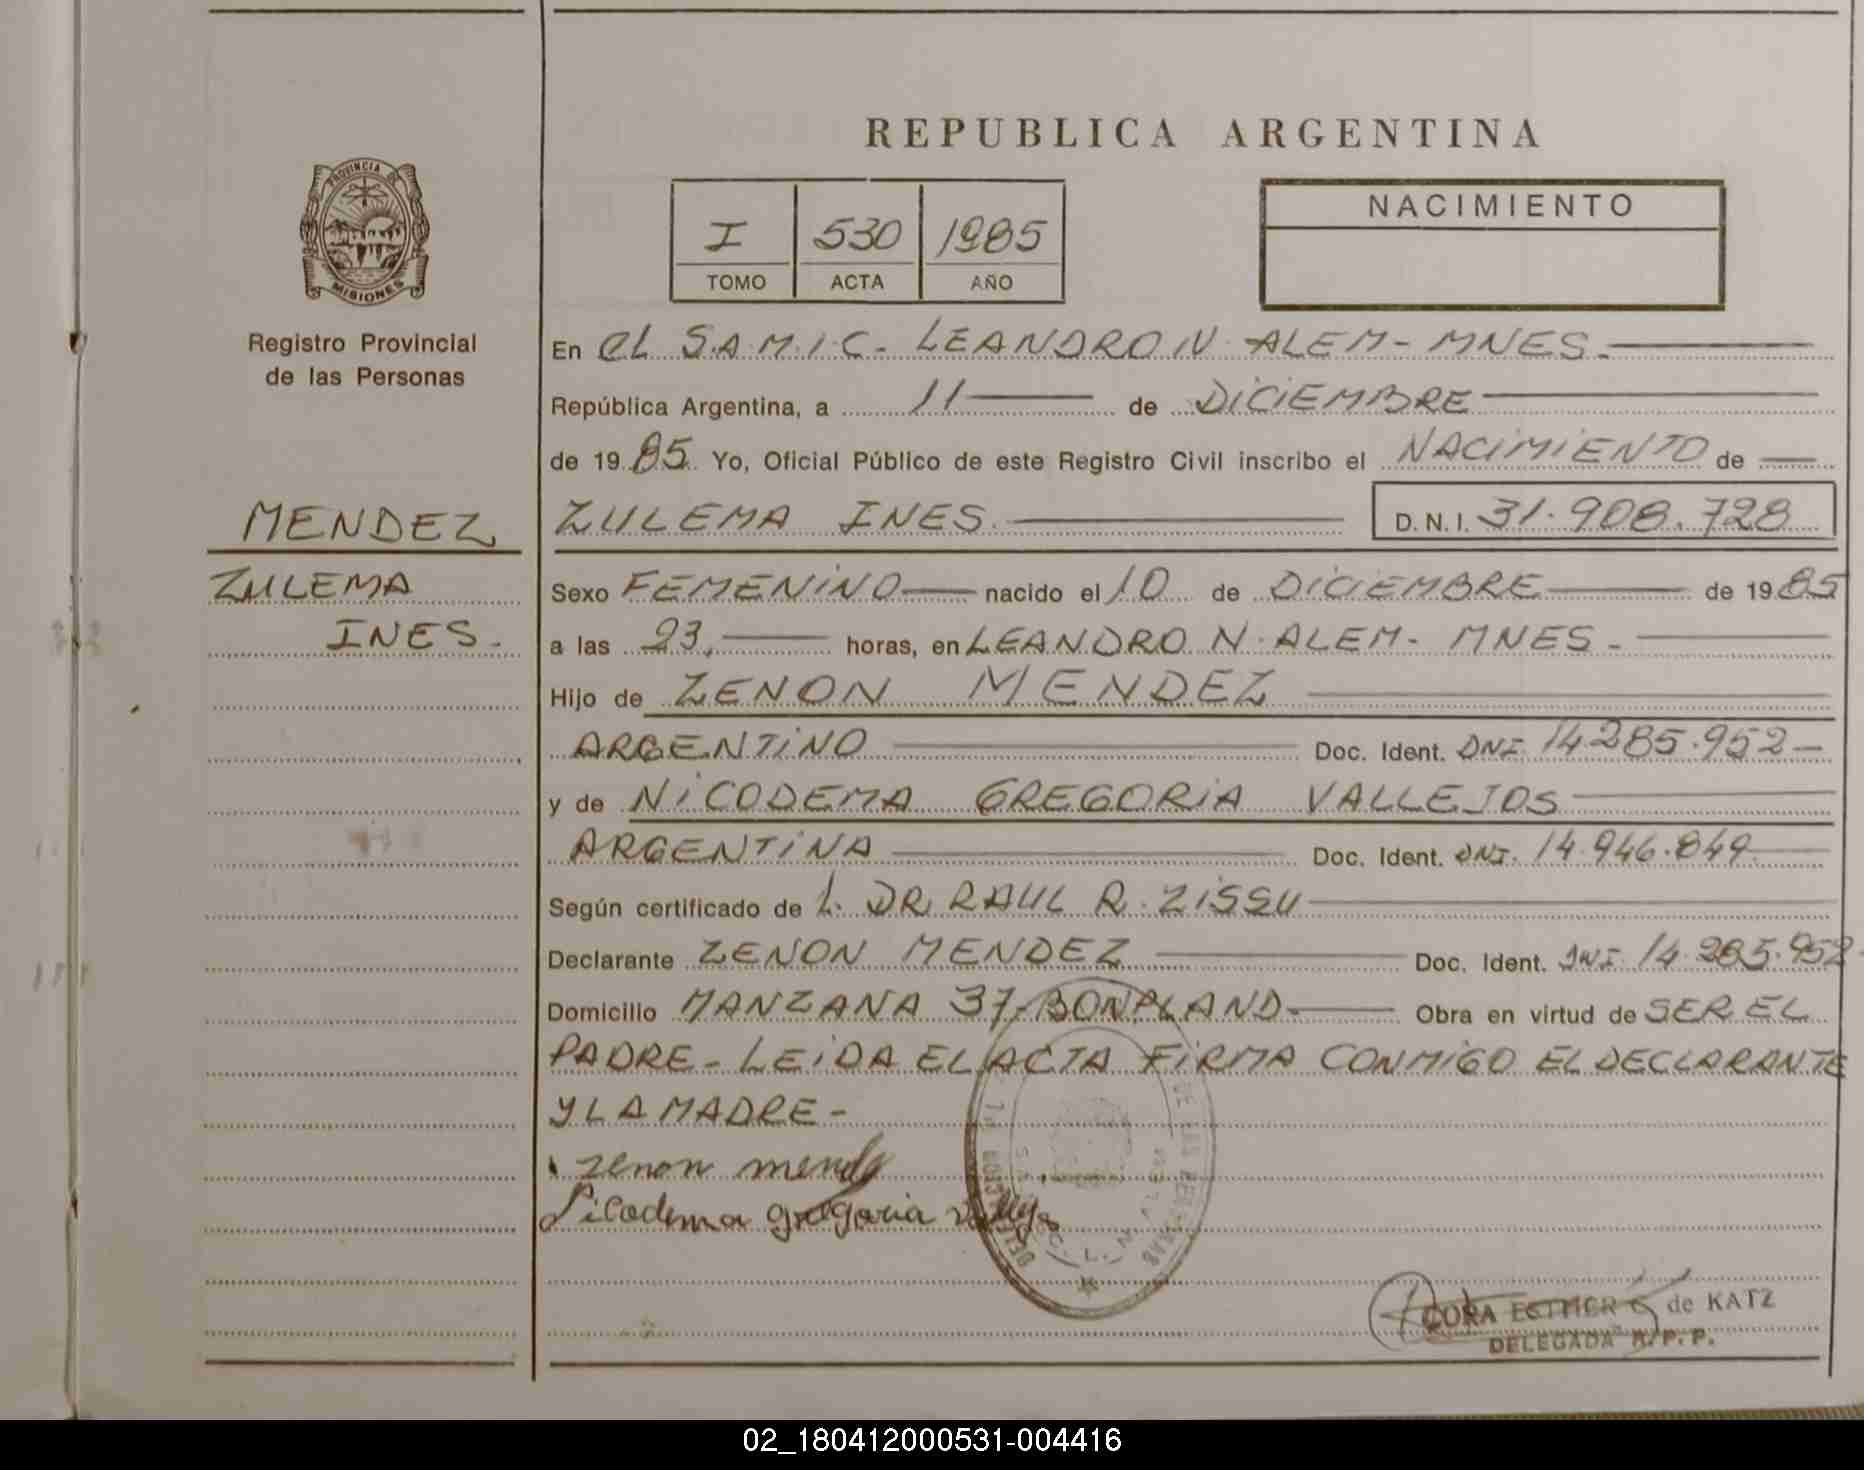 REPUBLICA ARGENTINA
PROVINCIA DE
MISIONES
Registro Provincial
de las Personas
I 530 1985
TOMO ACTA AÑO
NACIMIENTO
En EL S.A.M.I.C. LEANDRO N. ALEM - MNES.
República Argentina, a 11 de DICIEMBRE
de 1985 Yo, Oficial Público de este Registro Civil inscribo el NACIMIENTO de
MENDEZ
ZULEMA INES. D.N.I. 31.908.728
ZULEMA
INES.
Sexo FEMENINO nacido el 10 de DICIEMBRE de 1985
a las 23, horas, en LEANDRO N. ALEM - MNES -
Hijo de ZENON MENDEZ
ARGENTINO Doc. Ident. DNI 14.285.952
y de NICODEMA GREGORIA VALLEJOS
ARGENTINA Doc. Ident. DNI. 14.946.849
Según certificado de L. DR RAUL R. ZISSU
Declarante ZENON MENDEZ Doc. Ident. DNI 14.285.952
Domicilio MANZANA 37 - BONPLAND - Obra en virtud de SER EL
PADRE - LEIDA EL ACTA FIRMA CONMIGO EL DECLARANTE
Y LA MADRE -
zenon
gregoria
CORA ESTHER de KATZ
DELEGADA R.P.P.
02_180412000531-004416